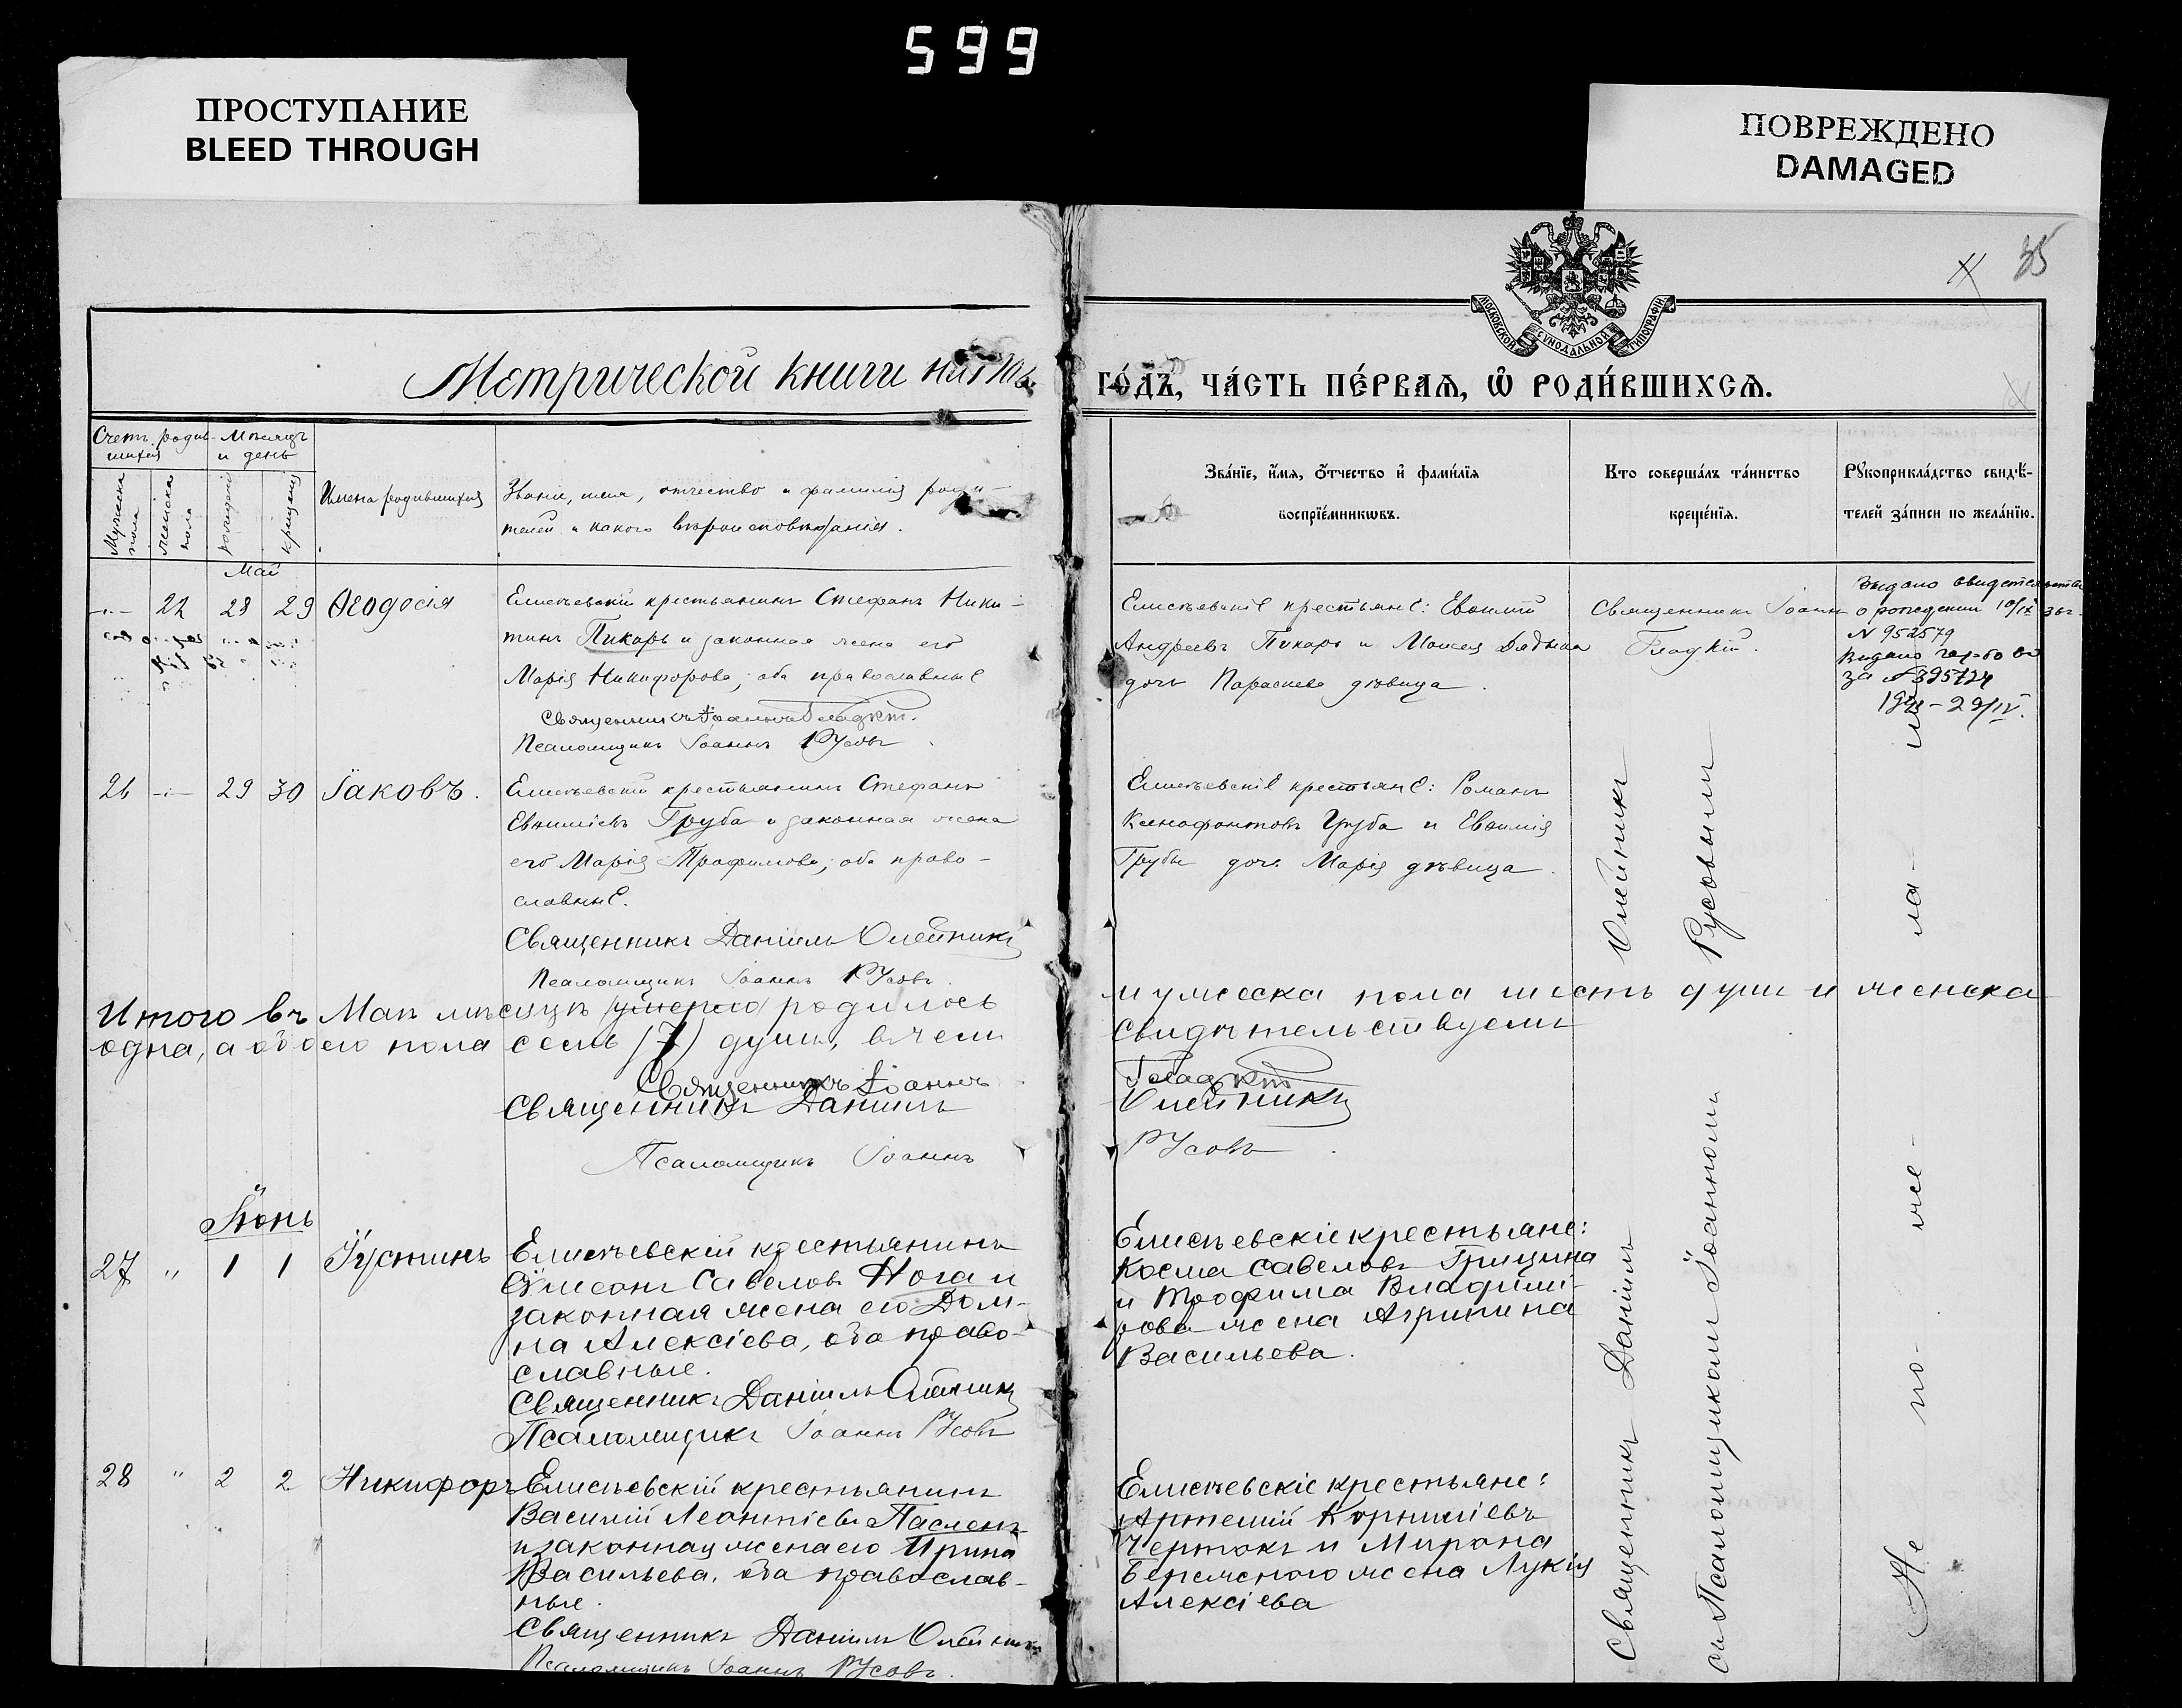 599
ПРОСТУПАНИЕ
BLEED THROUGH
ПОВРЕЖДЕНО
DAMAGED
35
МОСКОВСКОЙ СѴНОДАЛЬНОЙ ТИПОГРАФІИ
Метрической книги на
го́дъ, ча́сть пе́рваѧ, ѡ҆ роди́вшихсѧ.
Счетъ родив-
шихся
Мѣсяцъ
и день
Мужеска
пола
Женска
пола
рожденія
крещенія
Имена родившихся
Званіе, имя, отчество и фамилія роди-
телей и какого вѣроисповѣданія.
Зва́нїе, и҆́мѧ, ѻ҆́тчество и҆ фами́лїѧ
воспрїе́мникѡвъ.
Кто соверша́лъ та́инство
креще́нїѧ.
Рꙋкоприкла́дство свидѣ́-
телей за́писи по жела́нїю.
Май
22 28 29 Ѳеодосія
Елисѣевскій крестьянинъ Стефанъ Ники-
тинъ Пикарь и законная жена его
Марія Никифорова, оба православные
Священникъ Іоаннъ Гладкій.
Псаломщикъ Іоаннъ Русовъ
Елисѣевскіе крестьяне: Евѳимій
Андреевъ Пикарь и Моисея
дочь Параскева дѣвица.
Священникъ Іоаннъ
Гладкій.
Выдано свидетельство
о рождении 10/IX
N 952579
Выдано
за № 395724
29/IV.
26 29 30 Іаковъ.
Елисѣевскій крестьянинъ Стефанъ
Евѳиміевъ Груба и законная жена
его Марія Трофимова, оба право-
славные.
Священникъ Даніилъ Олейникъ
Псаломщикъ Іоаннъ Русовъ.
Елисѣевскіе крестьяне: Романъ
Ксенофонтовъ Груба и Евѳимія
Грубы дочь Марія дѣвица.
Итого въ Маѣ мѣсяцѣ (умерло) родилось
мужеска пола шесть душъ и женска
одна, а обоего пола семь (7) душъ, въ чемъ
свидѣтельствуемъ
Священникъ Іоаннъ
Гладкій
Священникъ Даніилъ
Олейникъ
Псаломщикъ Іоаннъ
Русовъ
Іюнь
27 " 1 1 Іустинъ
Елисѣевскій крестьянинъ
Сѵмеонъ Савеловъ Нога и
законная жена его Дом-
на Алексіева, оба право-
славные.
Священникъ Даніилъ Олейникъ
Псаломщикъ Іоаннъ Русовъ
Елисѣевскіе крестьяне:
Косма Савеловъ Грицина
и Трофима Владимі-
рова жена Агрипина
Васильева.
28 " 2 2 Никифоръ
Елисѣевскій крестьянинъ
Василій Леонтіевъ Пасленъ
и законная жена его Ирина
Васильева, оба православ-
ные.
Священникъ Даніилъ Олейникъ
Псаломщикъ Іоаннъ Русовъ.
Елисѣевскіе крестьяне:
Артемій Корниліевъ
Чертокъ и Мирона
Бережного жена Лукія
Алексіева
Священникъ Даніилъ Олейникъ
съ Псаломщикомъ Іоанномъ Русовымъ
Не по- же- ла-